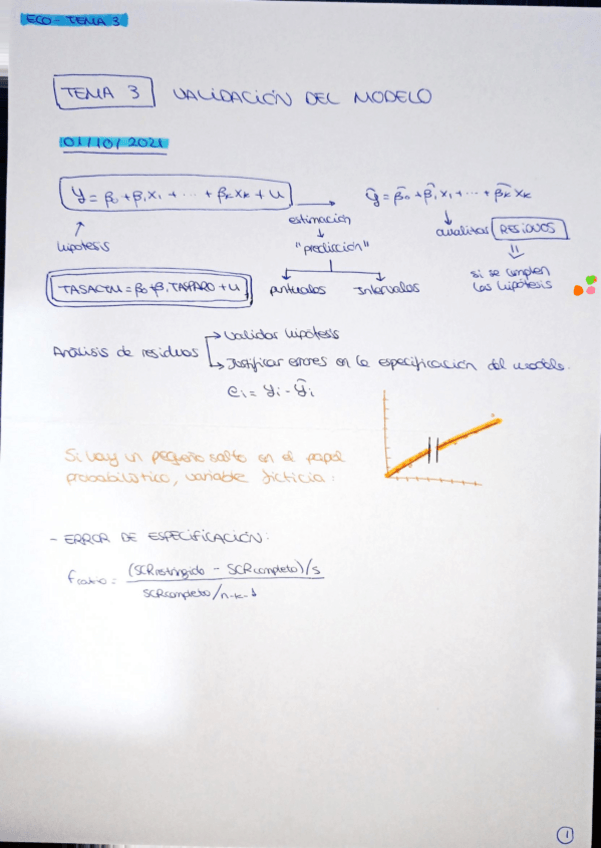 ECO - TEMA 3
TEMA 3 VALIDACIÓN DEL MODELO
01/10/2021
y = β0 + β1x1 + ... + βkxk + u
ŷ = β̂0 + β̂1x1 + ... + β̂kxk
estimación
analizar RESIDUOS
hipótesis
"predicción"
si se cumplen
las hipótesis
TASACTU = β0 + β1 TASPARO + u
puntuales
Intervalos
Análisis de residuos
→ Validar hipótesis
→ Justificar errores en la especificación del modelo.
ei = yi - ŷi
Si hay un pequeño salto en el papel
probabilístico, variable ficticia:
- ERROR DE ESPECIFICACIÓN:
fratio = (SCRrestringido - SCRcompleto)/s
SCRcompleto/n-k-1
1